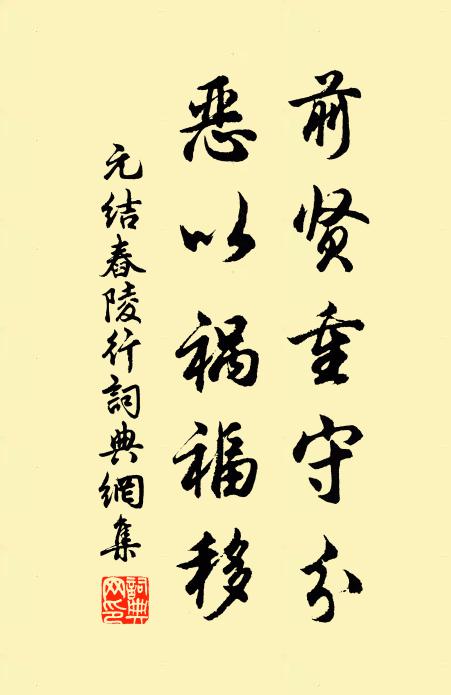 前贤重守分
恶以祸福移
元结舂陵行词典網集
詞典网印